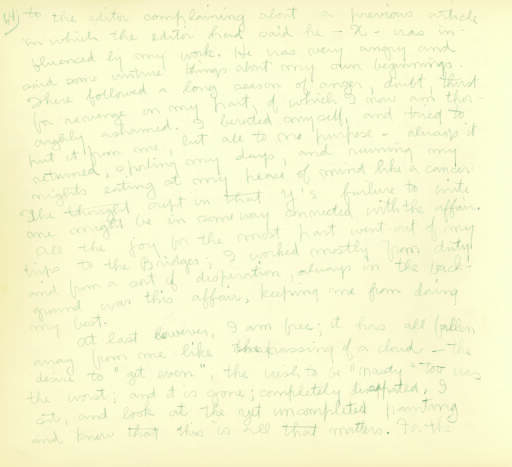 to the editor complaining about a previous article
in which the editor had said he – X – was in-
fluenced by my work. He was very angry and
said some untrue things about my own beginnings.
There followed a long season of anger, doubt, thirst
for revenge on my part, of which I now am thor-
oughly ashamed. I berated myself, and tried to
put it from me, but all to no purpose – always it
returned, spoiling my days, and ruining my
nights eating at my peace of mind like a cancer
The thought crept in that Y's failure to write
me might be in some way connected with the affair.
All the joy for the most part went out of my
trips to the Bridges; I worked mostly from duty
and from a sort of desperation, always in the back-
ground was this affair, keeping me from doing
my best.
At last however, I am free; it has all fallen
away from me like the passing of a cloud – The
desire to "get even", the wish to be "nasty" too was
the worst; and it is gone; completely I
sit, and look at the yet uncompleted painting
and know that this is all that matters. For the